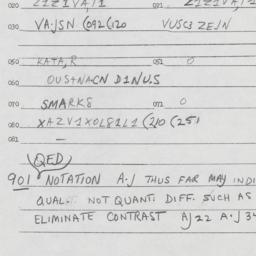 020 Z1Z1VA/1 021 Z1Z1VA/1
030 VA.JSN (092(120 VUSC3ZEJN
050 KATA,R 051 0
060 OUSTNACN D1NUS
070 SMARK8 071 0
080 XAZV1XOL81L1 (210 (251
081 —
(QED)
901 NOTATION A.J THUS FAR MAY INDI
QUAL. NOT QUANTI. DIFF. SUCH AS
ELIMINATE CONTRAST AJ22 A.J34